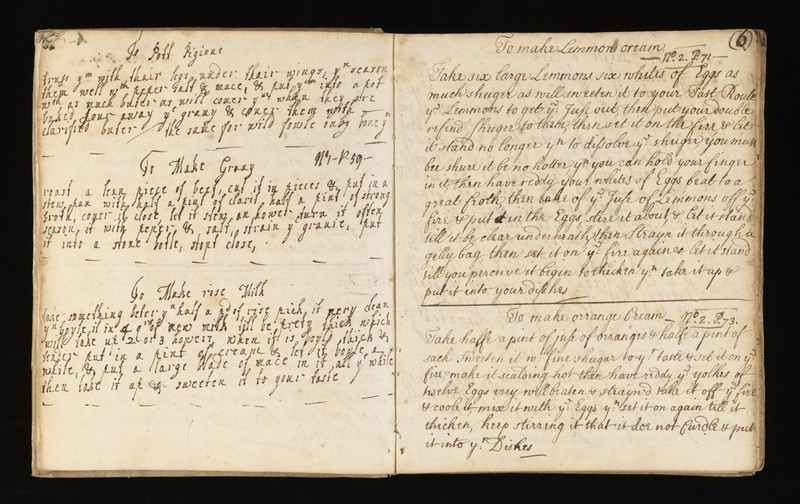 To Pott Pigions
truss ym with thair legs under thair wings, yn season
them well with peper salt & mace, & put ym into a pot
wth as much buter as will couer ym, when they are
baked pour away ye grauy & couer them with
clarified buter / the same for wild fowle only bone ym
To Make Grauy No 1 - P 59 -
roast a lean piece of beef, cut it in pieces & put in a
stew pan with half a pint of clarit half a pint of strong
broth, couer it close, let it stew an hower turn it often
season it with peper, & salt, strain ye grauie, put
it into a stone botle, stopt close,
To Make rise Milk
take something beter yn half a pd of rise pick it uery clean
yn boyle it in 4 qrts of new milk till be prety thick which
will take up 2 or 3 howers, when it is boyld thick &
tender put in a pint of cream & let it boyle a
while, & put a large blade of mace in it all ye while
then take it up & sweeten it to your taste
6
To make Lemmond cream
No. 2. P. 71 —
Take six large Lemmons six whites of Eggs as
much shuger as will sweeten it to your Tast Route
ye Lemmons to get ye Juse out then put your double
refind shuger to them, then set it on the fire & let
it stand no longer yn to dissolve ye shuger you must
bee shure it be no hotter yn you can hold your finger
in it, then have reddy your whites of Eggs beat to a
great froth, then take of ye Juse of Lemmons off ye
fire & put in the Eggs, stire it about & let it stand
till it be clear underneath, then Strayn it through a
gelly bag, then set it on ye fire again & let it stand
till you perceive it begin to thicken yn take it up &
put it into your dishes
To make orrange Cream — No. 2. P. 73.
Take halfe a pint of juse of orranges & halfe a pint of
sack sweeten it wth fine shugar to yr taste & set it on ye
fire make it scalding hot then have reddy ye yolkes off
twelve Eggs very well beaten & strayn'd take it off ye fire
& coole it mix it with ye Eggs yn set it on again till it
thicken, keep stirring it that it doe not Curdle & put
it into yr Dishes